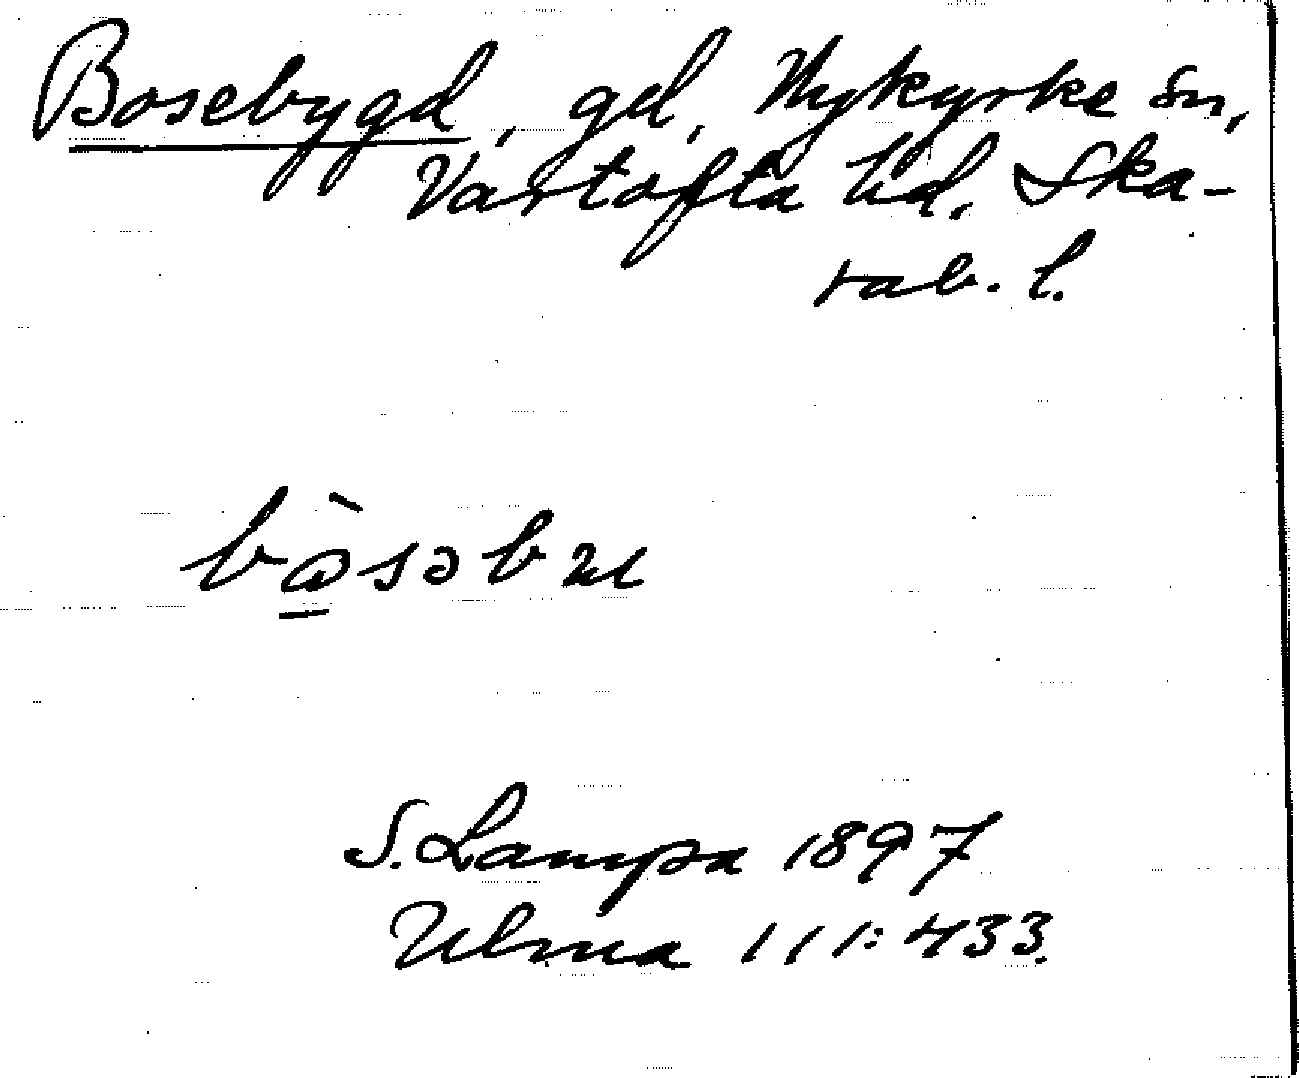 Bosebygd, gd, Nykyrke sn,
Vartofta hd, Ska-
rab. l.
bòsəbu
S. Lampa 1897
Ulma 111:433.